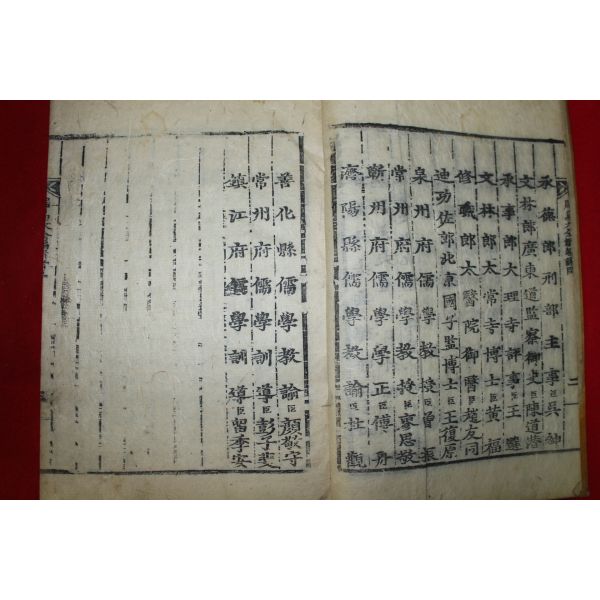 承德郎刑部主事臣吳紳
文林郎廣東道監察御史臣陳道潛
承事郎大理寺評事臣王選
文林郎太常寺博士臣黃福
修職郎太醫院御醫臣趙友同
迪功佐郎北京國子監博士臣王復原
泉州府儒學教授臣曾振
常州府儒學教授臣廖思敬
蘄州府儒學學正臣傅舟
濟陽縣儒學教諭臣杜觀
善化縣儒學教諭臣顏敬守
常州府儒學訓導臣彭子斐
鎮江府儒學訓導臣留季安